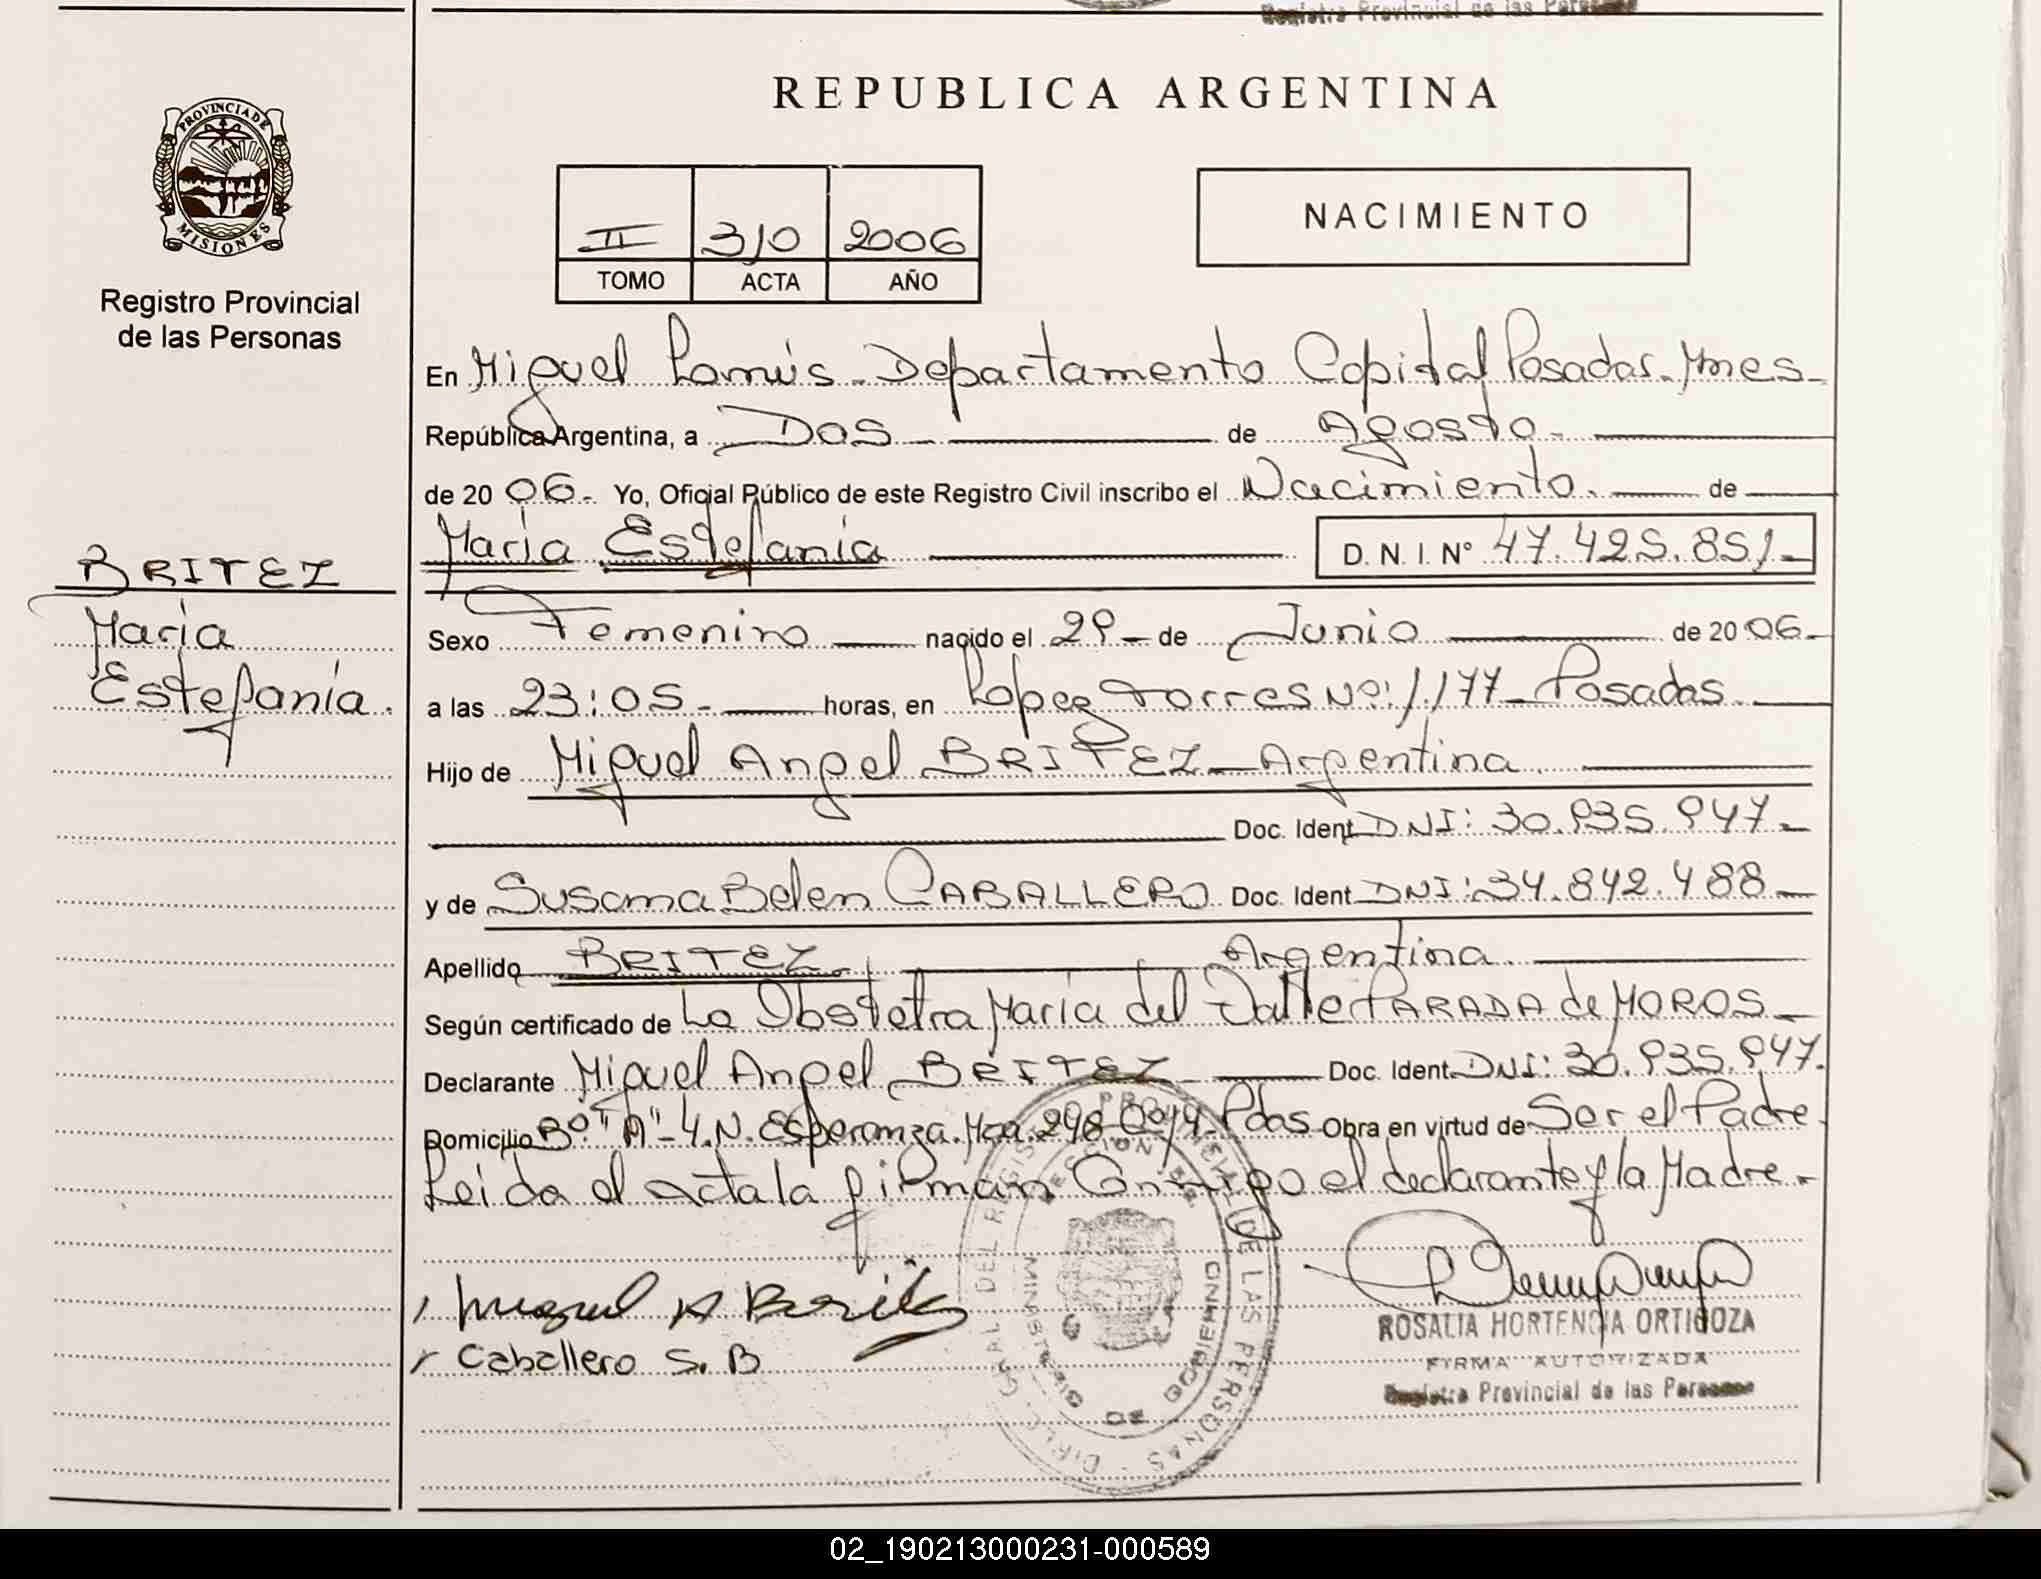 Registro Provincial de las Personas
PROVINCIA DE
MISIONES
Registro Provincial
de las Personas
REPUBLICA ARGENTINA
II 310 2006
TOMO ACTA AÑO
NACIMIENTO
En Miguel Lanús - Departamento Capital Posadas - Mnes -
República Argentina, a Dos - de Agosto -
de 20 06 - Yo, Oficial Público de este Registro Civil inscribo el Nacimiento. de
María Estefanía D. N. I. Nº 47.425.851 -
BRITEZ
María
Estefanía.
Sexo Femenino nacido el 29 - de Junio de 20 06 -
a las 23:05 - horas, en Lopez Torres Nº: 1.177 - Posadas
Hijo de Miguel Angel BRITEZ - Argentina
Doc. Ident. DNI: 30.935.947 -
y de Susana Belen CABALLERO Doc. Ident DNI: 34.842.488 -
Apellido BRITEZ. Argentina
Según certificado de La Obstetra María del Valle PARADA de MOROS -
Declarante Miguel Angel BRITEZ Doc. Ident. DNI: 30.935.947.
Domicilio Bº "A" - 4. N. Esperanza. Mza. 298 Pdas Obra en virtud de Ser el Padre.
Leida el acta la firman Conmigo el declarante y la Madre -
Miguel A Britez
Caballero S. B
DE LAS PERSONAS
MINISTERIO DE GOBIERNO
ROSALIA HORTENCIA ORTIGOZA
FIRMA AUTORIZADA
Registro Provincial de las Personas
02_190213000231-000589